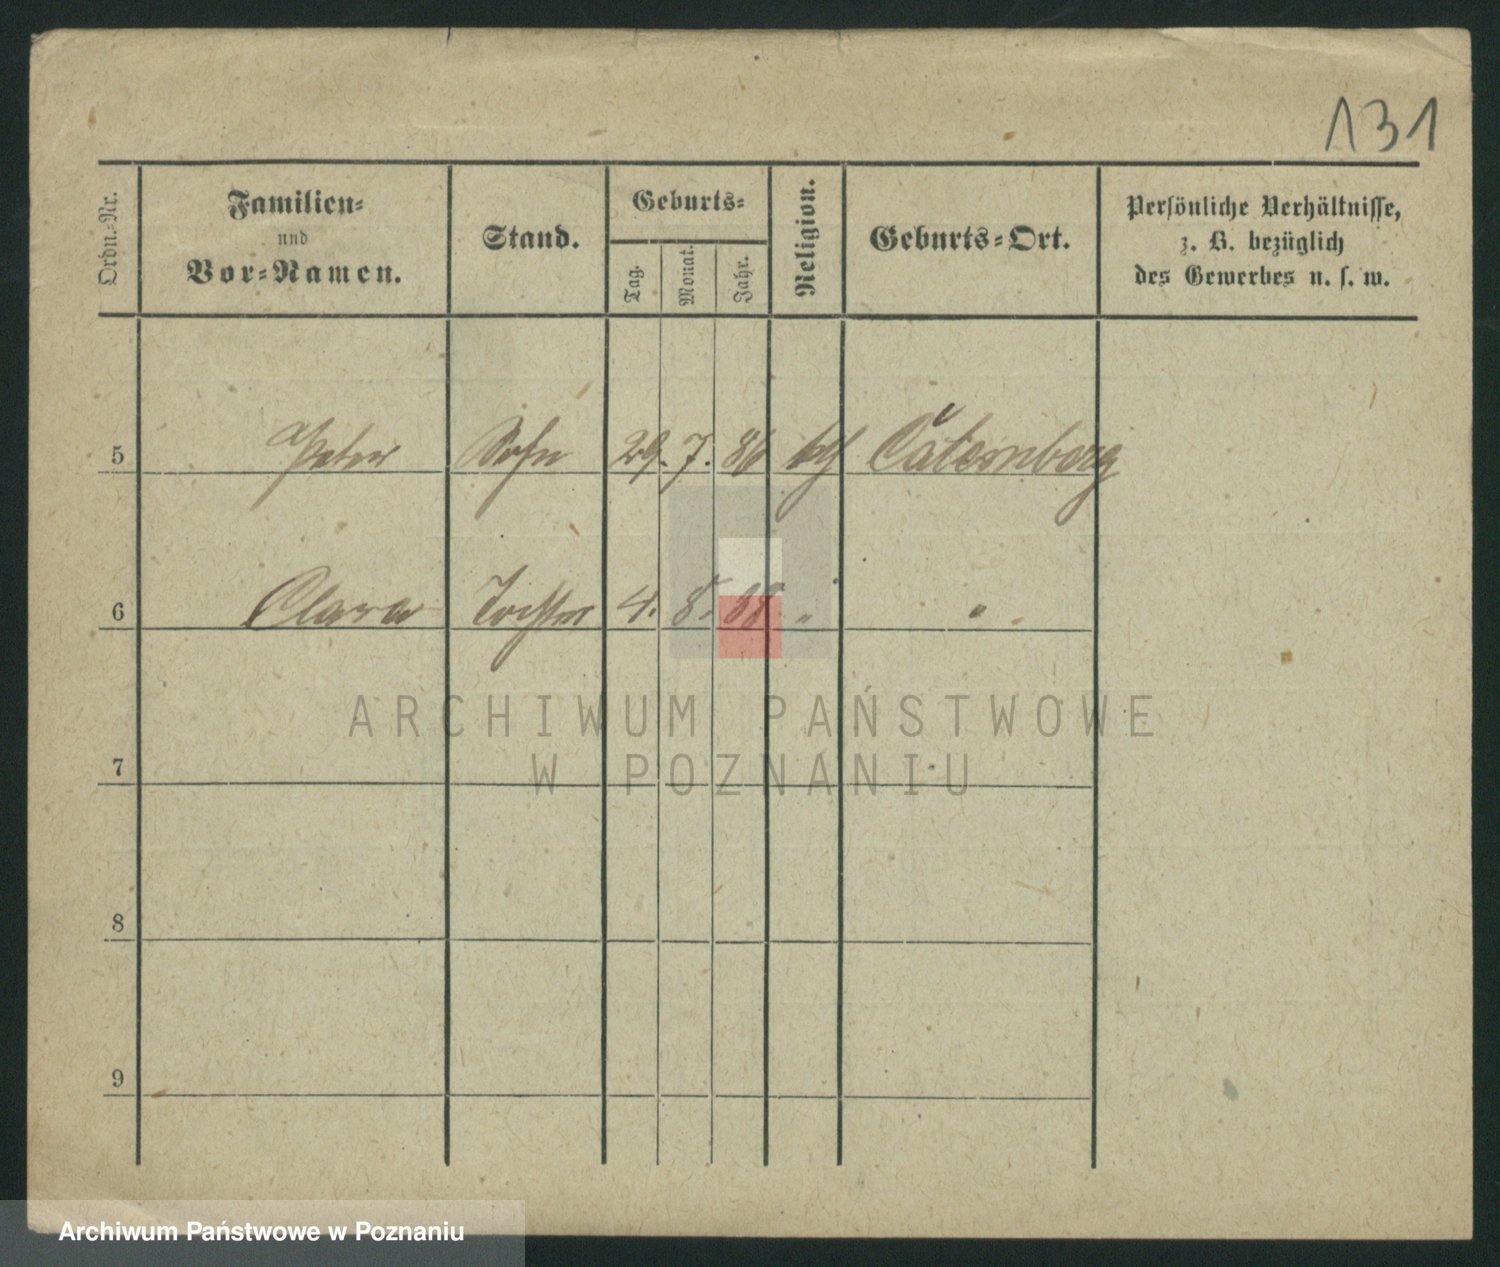 131
Ordn.-Nr.
Familien-
und
Vor-Namen.
Stand.
Geburts-
Tag.
Monat.
Jahr.
Religion.
Geburts-Ort.
Persönliche Verhältnisse,
z. B. bezüglich
des Gewerbes u. s. w.
5 Peter Sohn 29. 7. 86 kth Caternberg
6 Clara Tochter 4. 8. 88. " "
7
8
9
ARCHIWUM PAŃSTWOWE
W POZNANIU
Archiwum Państwowe w Poznaniu